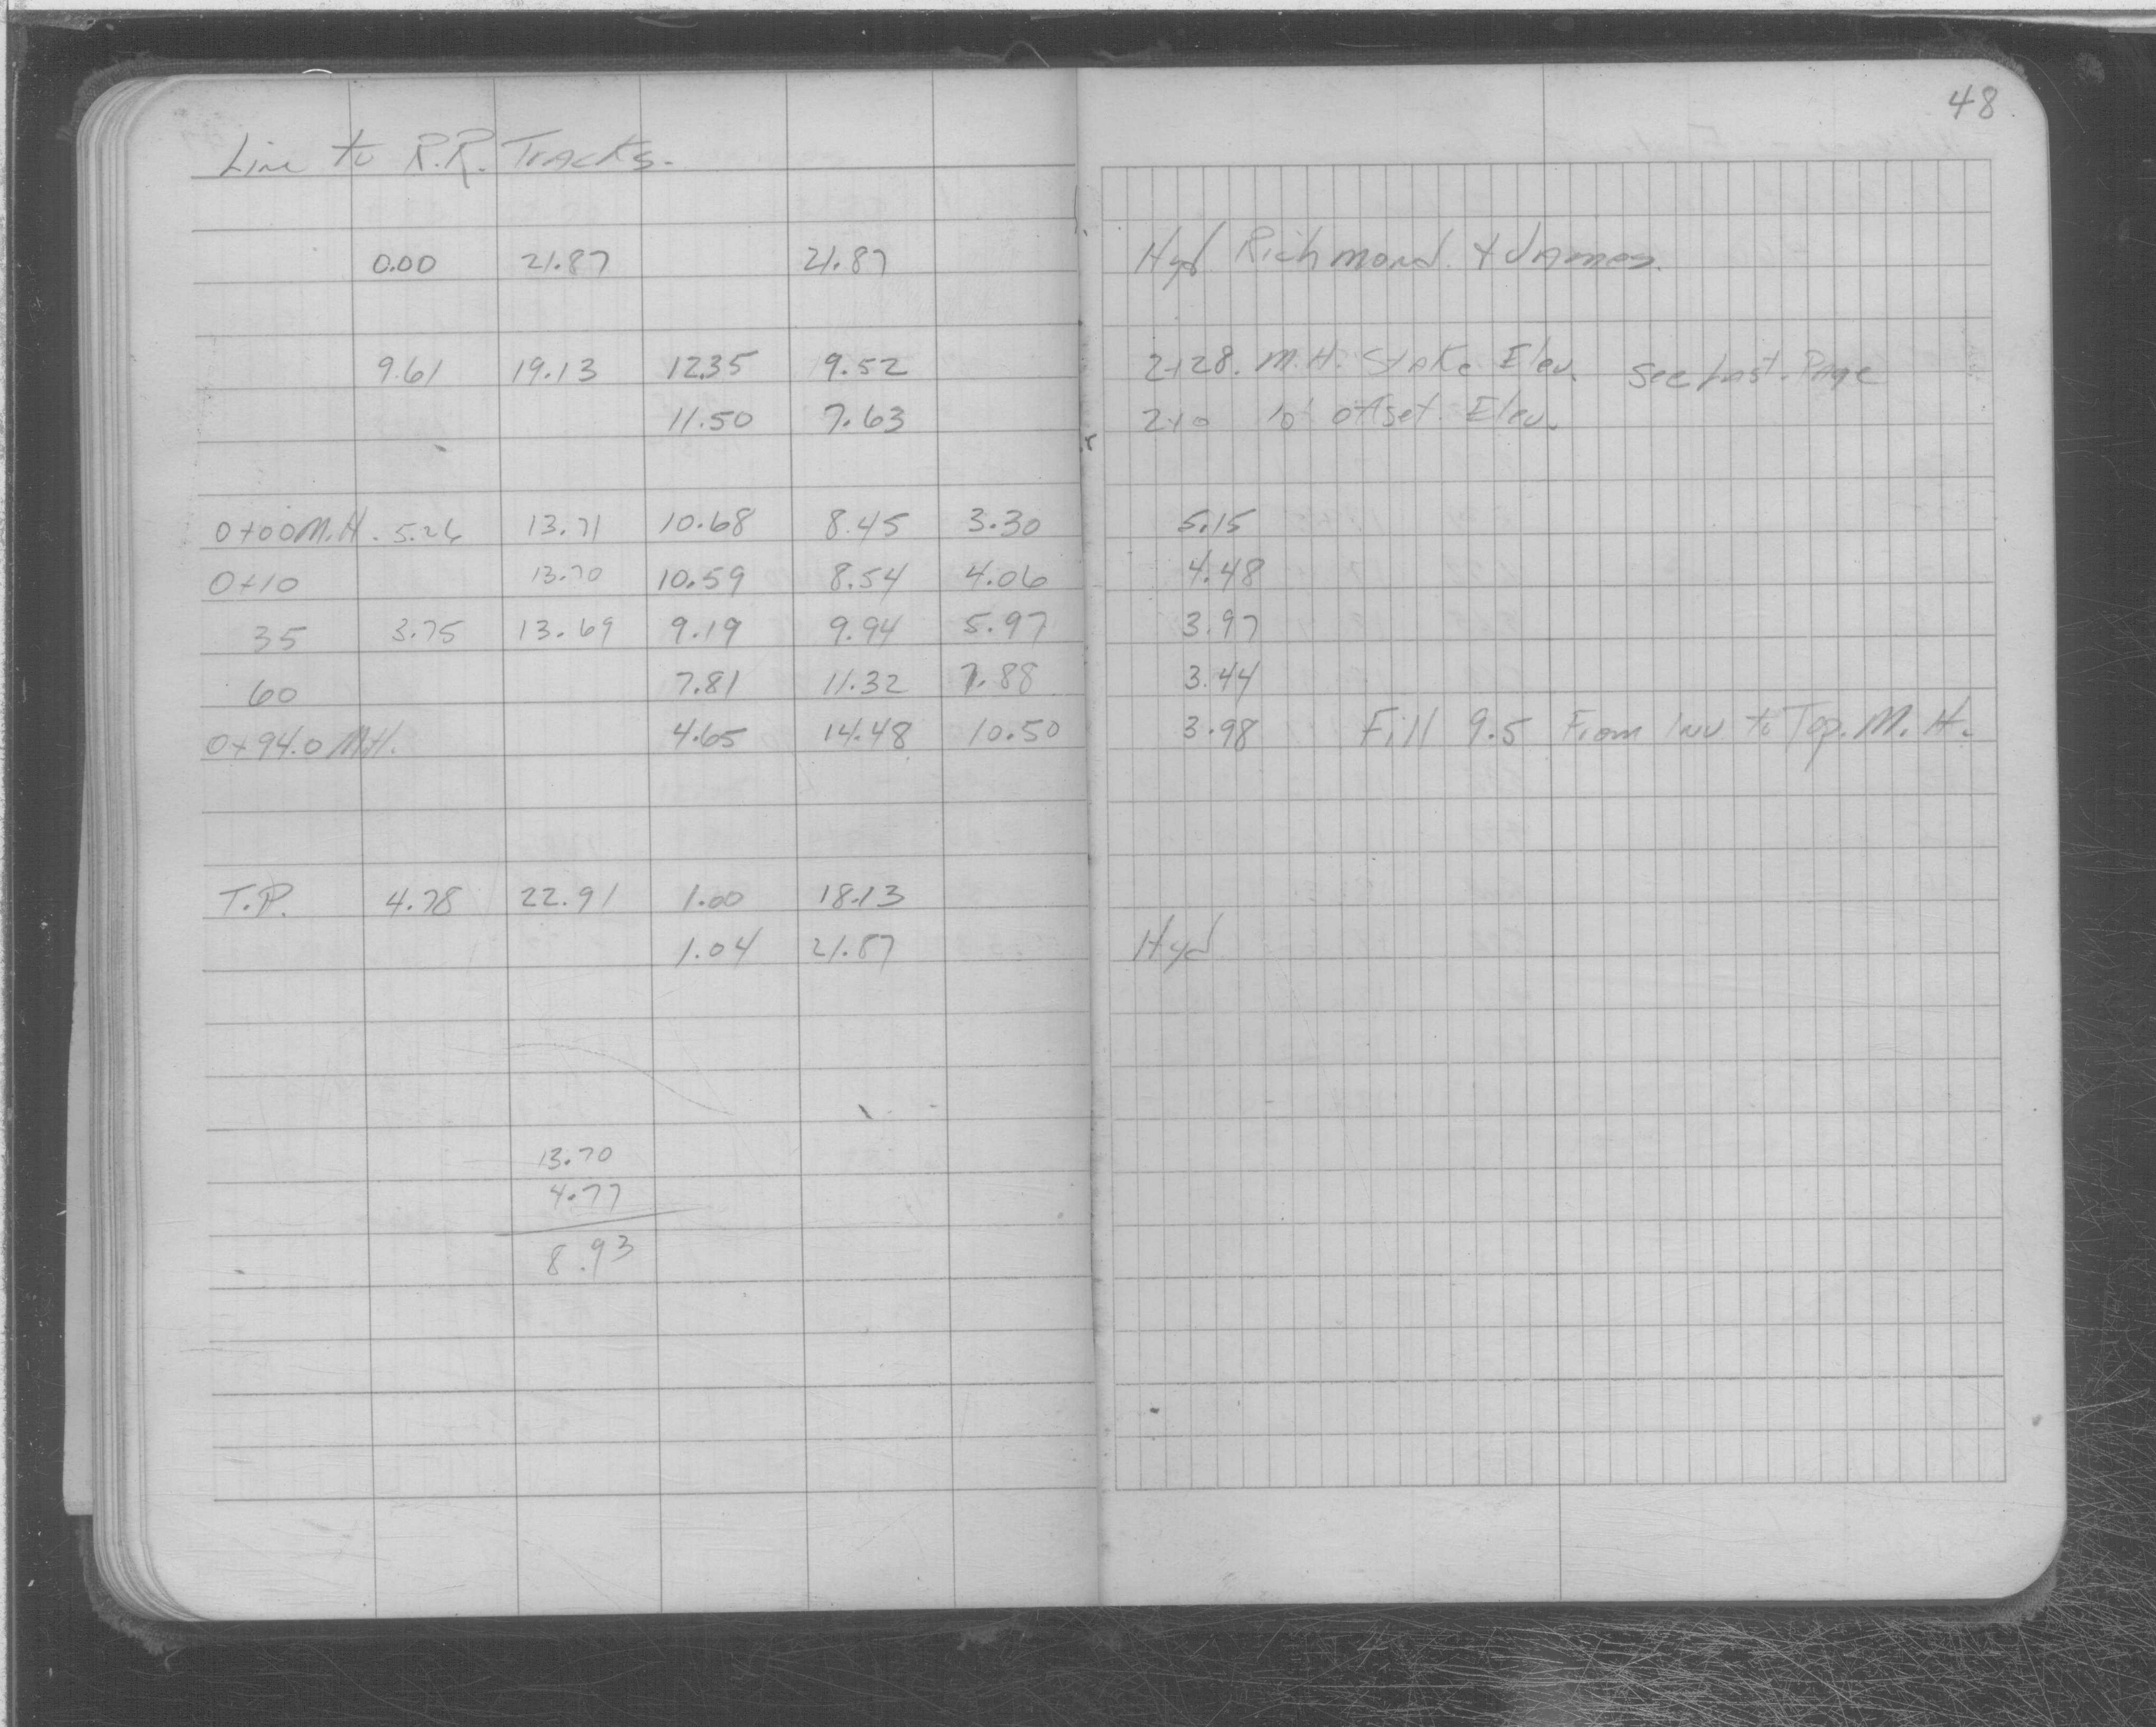 48
Line to R.R. Tracks.
0.00 21.87 21.87 Hyd Richmond & James.
9.61 19.13 12.35 9.52 2+28. M.H. Stake Elev. See Last Page
11.50 7.63 2+0 10' offset Elev.
0+00 M.H. 5.26 13.71 10.68 8.45 3.30 5.15
0+10 13.70 10.59 8.54 4.06 4.48
35 3.75 13.69 9.19 9.94 5.97 3.97
60 7.81 11.32 7.88 3.44
0+94.0 M.H. 4.65 14.48 10.50 3.98 Fill 9.5 From Inv to Top. M.H.
T.P. 4.78 22.91 1.00 18.13
1.04 21.87 Hyd
13.70
4.77
8.93